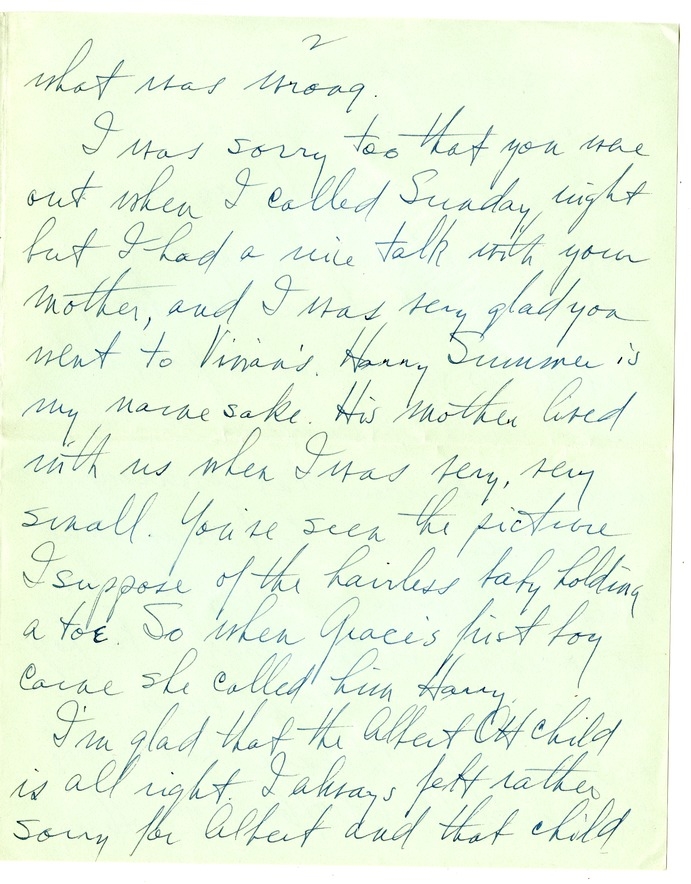 2
what was wrong.
I was sorry too that you were
out when I called Sunday night
but I had a nice talk with your
mother, and I was very glad you
went to Vivian's. Harry Summer is
my namesake. His mother lived
with us when I was very, very
small. You've seen the picture
I suppose of the hairless baby holding
a toe. So when Grace's first boy
came she called him Harry.
I'm glad that the Albert child
is all right. I always felt rather
sorry for Albert and that child